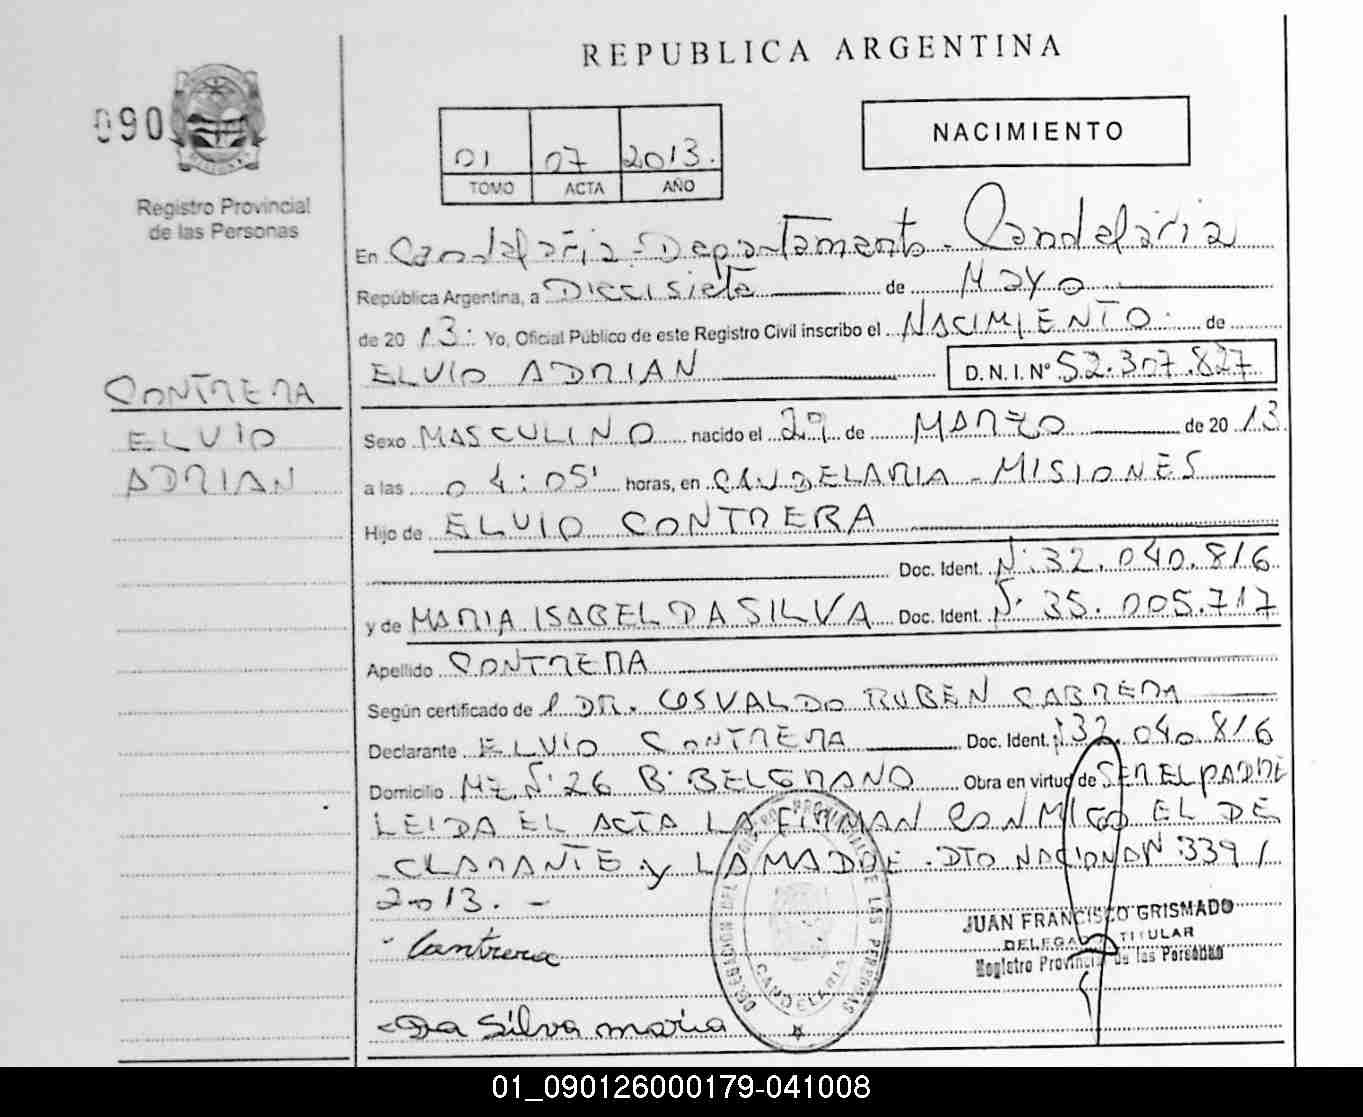 REPUBLICA ARGENTINA
090
Registro Provincial
de las Personas
01 07 2013.
TOMO ACTA AÑO
NACIMIENTO
En Candelaria - Departamento - Candelaria
República Argentina, a Diecisiete de Mayo
de 20 13. Yo, Oficial Público de este Registro Civil inscribo el NACIMIENTO de
ELVIO ADRIAN D. N. I. Nº 52.307.827
CONTRERA
ELVIO
ADRIAN
Sexo MASCULINO nacido el 29 de MARZO de 20 13
a las 04:05' horas, en CANDELARIA - MISIONES
Hijo de ELVIO CONTRERA
Doc. Ident. Nº 32.040.816
y de MARIA ISABEL DA SILVA Doc. Ident. Nº 35.005.717
Apellido CONTRERA
Según certificado de DR. OSVALDO RUBEN CABRERA
Declarante ELVIO CONTRERA Doc. Ident. 32.040.816
Domicilio Mz Nº 26 Bº BELGRANO Obra en virtud de SER EL PADRE
LEIDA EL ACTA LA FIRMAN CONMIGO EL DE
CLARANTE y LA MADRE. DTO NACIONAL Nº 339/
2013. -
Contrera
Da Silva maria
DELEGACION DEL REGISTRO PROVINCIAL DE LAS PERSONAS
CANDELARIA
JUAN FRANCISCO GRISMADO
DELEGADO TITULAR
Registro Provincial de las Personas
01_090126000179-041008